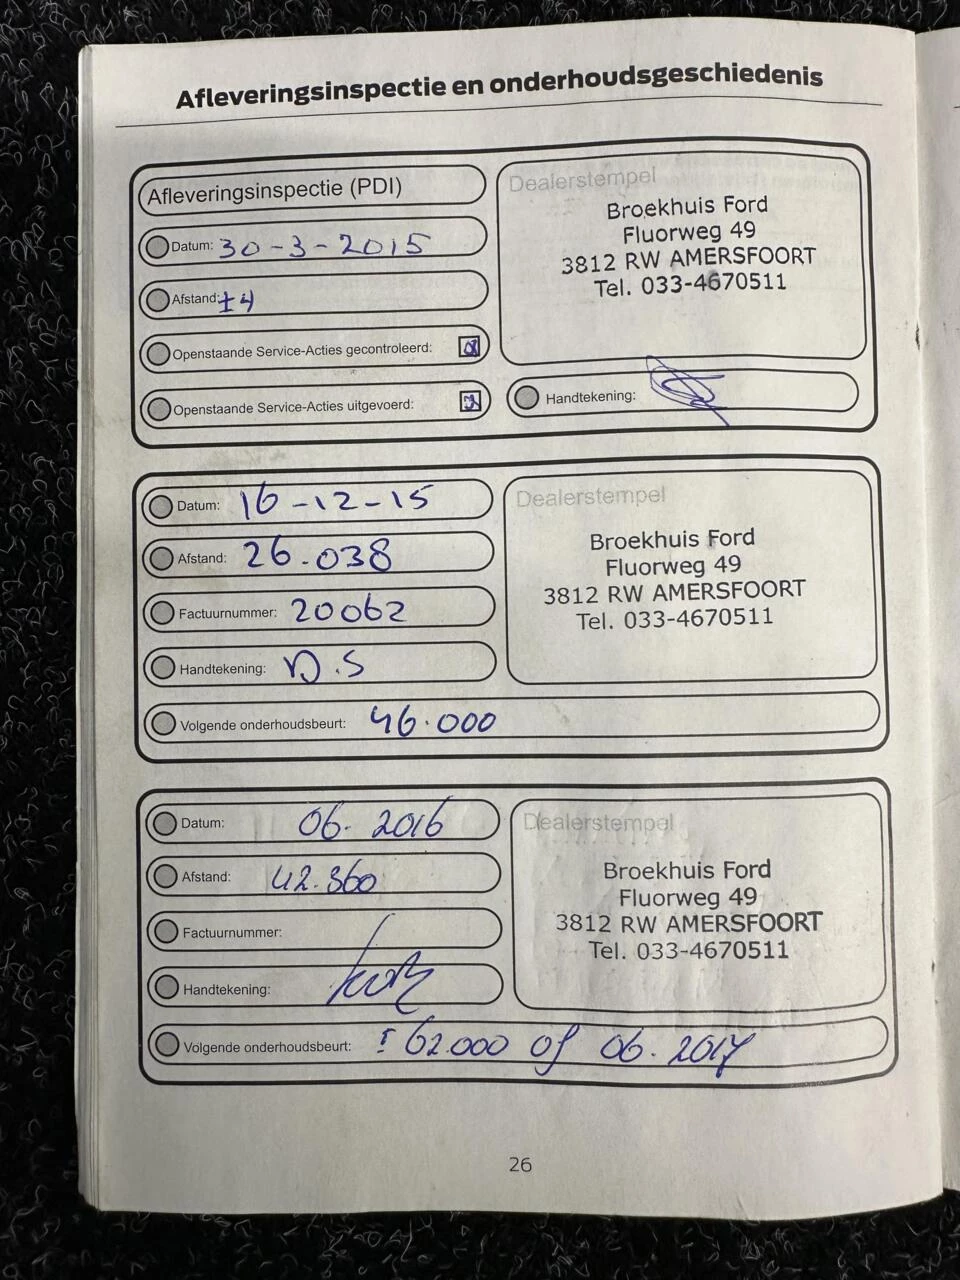 Afleveringsinspectie en onderhoudsgeschiedenis
Afleveringsinspectie (PDI)
Datum: 30-3-2015
Afstand: ±4
Openstaande Service-Acties gecontroleerd:
Openstaande Service-Acties uitgevoerd:
Dealerstempel
Broekhuis Ford
Fluorweg 49
3812 RW AMERSFOORT
Tel. 033-4670511
Handtekening:
Datum: 16-12-15
Afstand: 26.038
Factuurnummer: 20062
Handtekening: D.S
Volgende onderhoudsbeurt: 46.000
Dealerstempel
Broekhuis Ford
Fluorweg 49
3812 RW AMERSFOORT
Tel. 033-4670511
Datum: 06. 2016
Afstand: 42.360
Factuurnummer:
Handtekening:
Volgende onderhoudsbeurt: ± 62.000 of 06. 2017
Dealerstempel
Broekhuis Ford
Fluorweg 49
3812 RW AMERSFOORT
Tel. 033-4670511
26